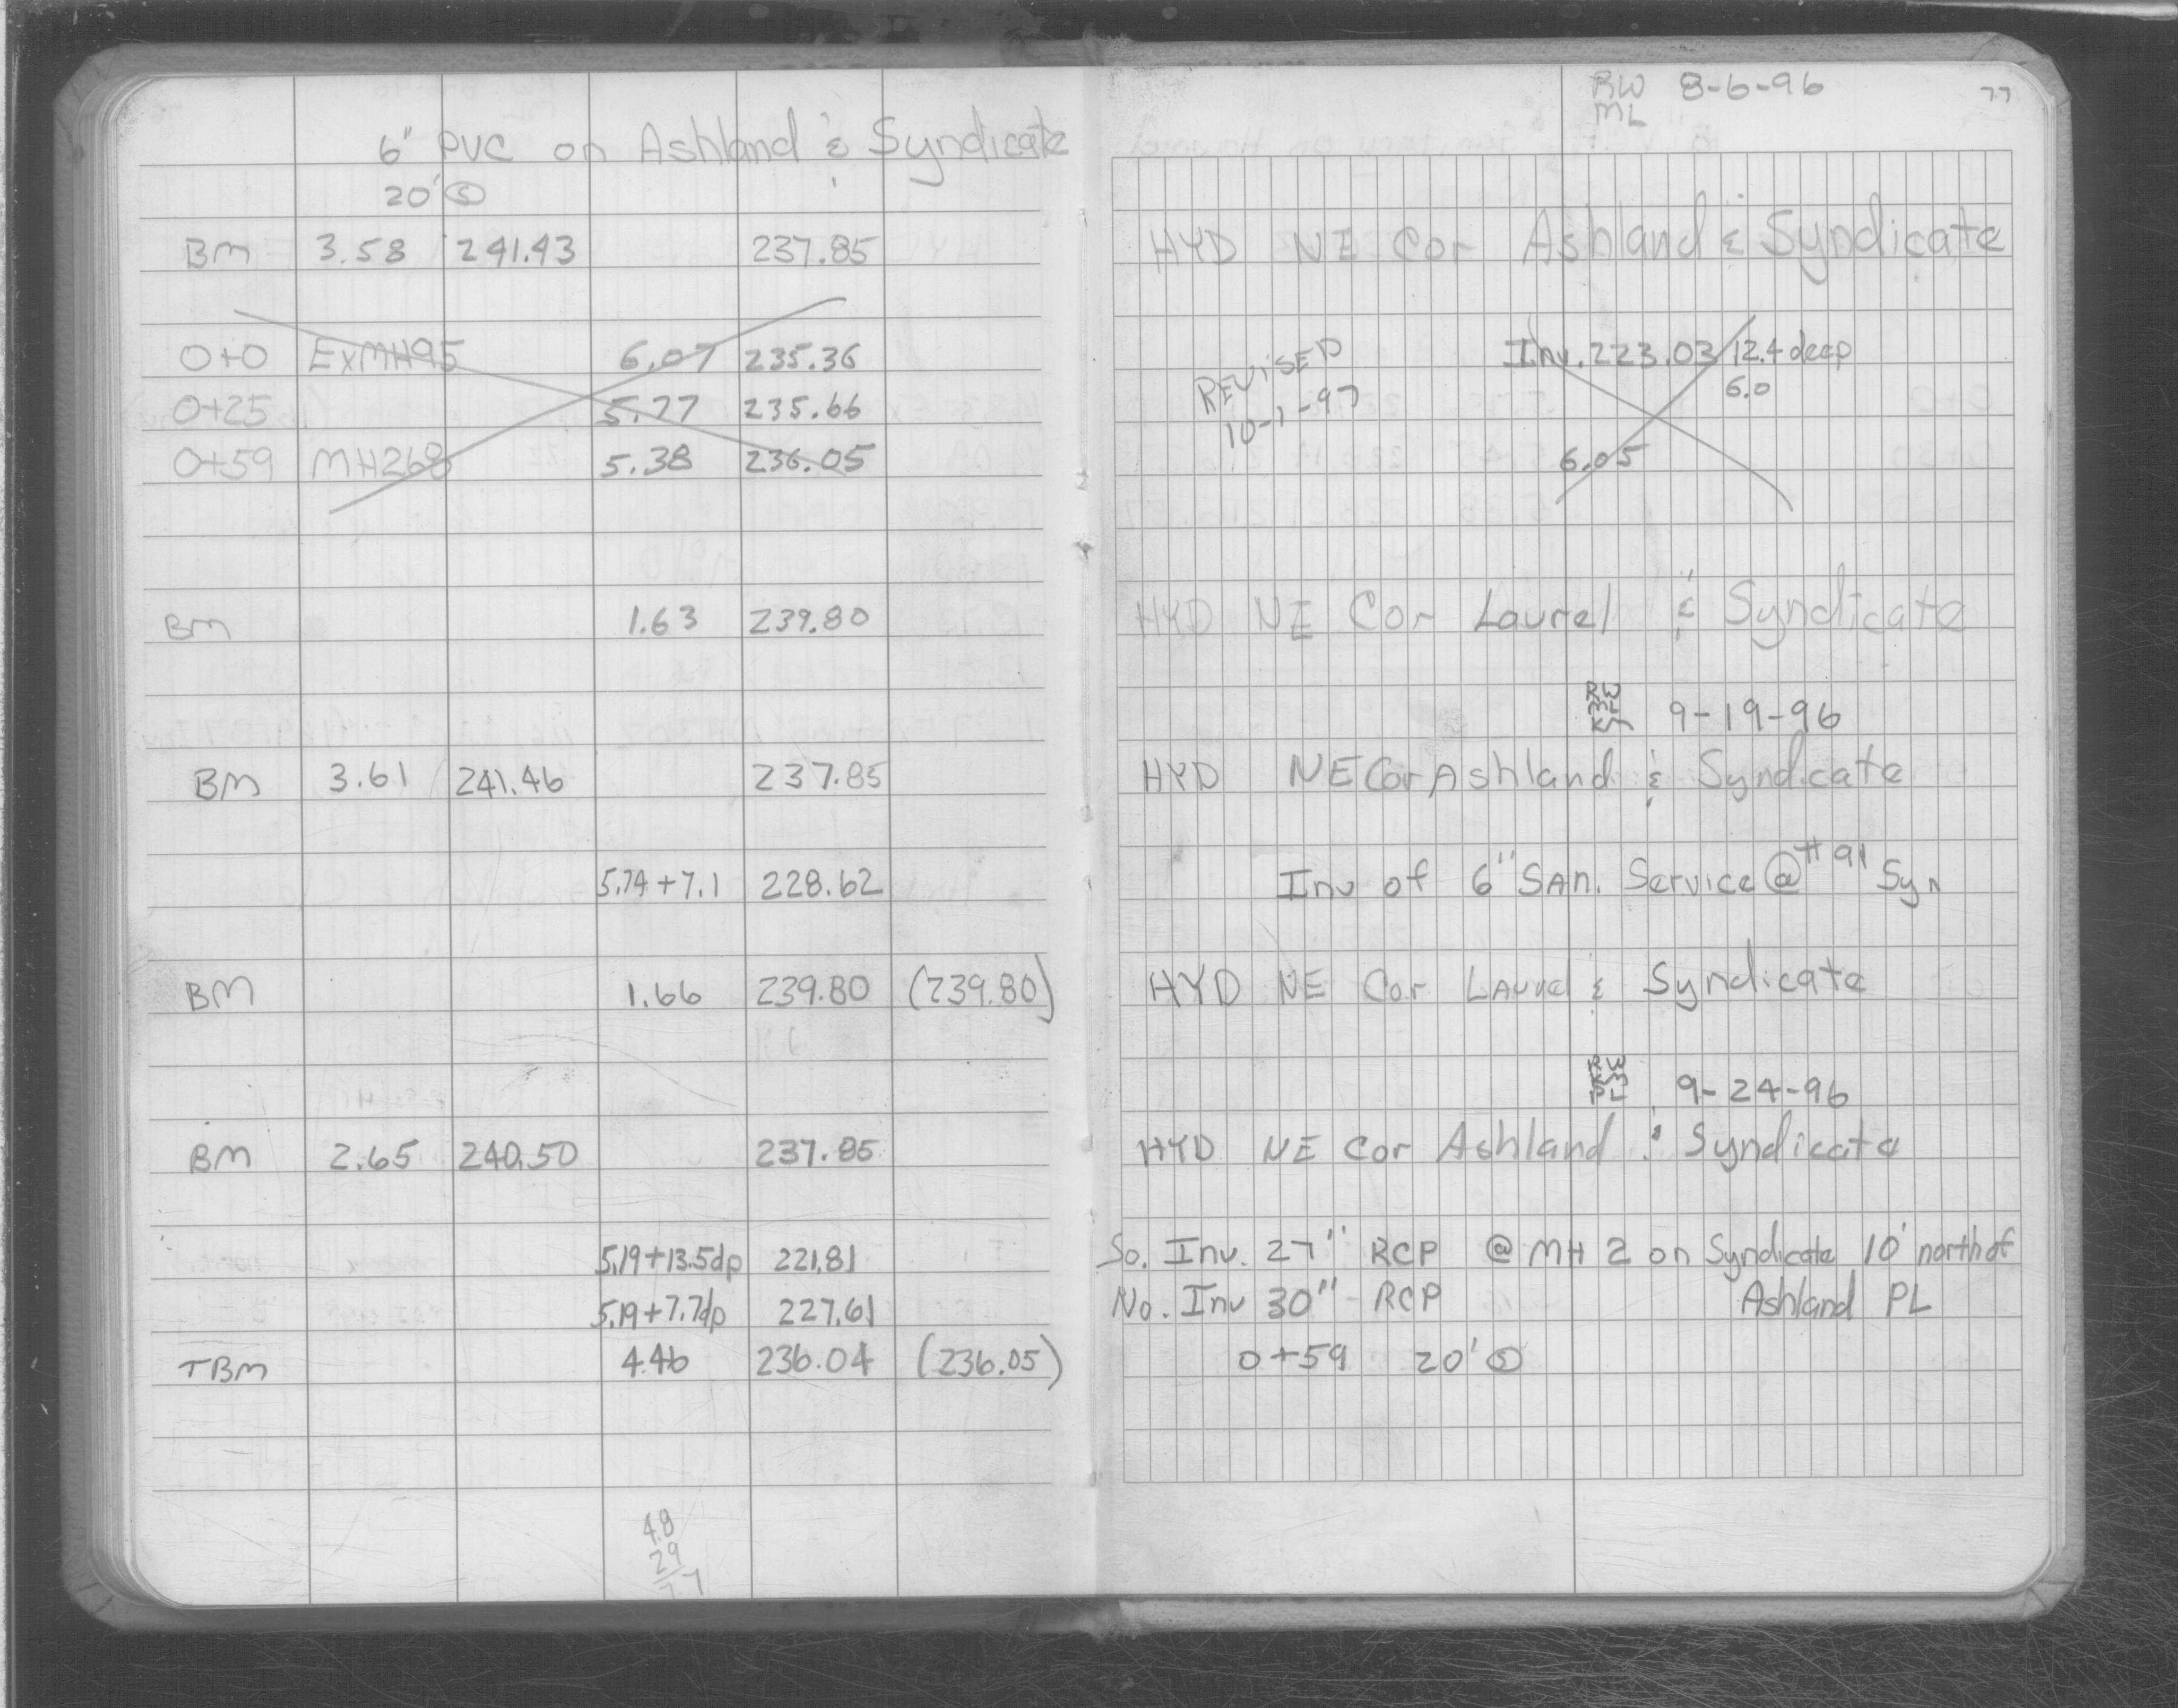 6" PVC on Ashland & Syndicate
20' Ⓢ
BM 3.58 241.43 237.85
0+0 ExMH95 6.07 235.36
0+25 5.77 235.66
0+59 MH268 5.38 236.05
BM 1.63 239.80
BM 3.61 241.46 237.85
5.74+7.1 228.62
BM 1.66 239.80 (239.80)
BM 2.65 240.50 237.85
5.19+13.5dp 221.81
5.19+7.7dp 227.61
TBM 4.46 236.04 (236.05)
48
29
77
RW 8-6-96 77
ML
HYD NE Cor Ashland & Syndicate
REVISED
10-1-97
Inv. 223.03 12.4 deep
6.0
6.05
HYD NE Cor Laurel & Syndicate
9-19-96
HYD NE Cor Ashland & Syndicate
Inv of 6" SAN. Service @ #91 Syn
HYD NE Cor Laurel & Syndicate
9-24-96
HYD NE Cor Ashland & Syndicate
So. Inv. 27" RCP @ MH 2 on Syndicate 10' north of
No. Inv 30" RCP Ashland PL
0+59 20' Ⓢ